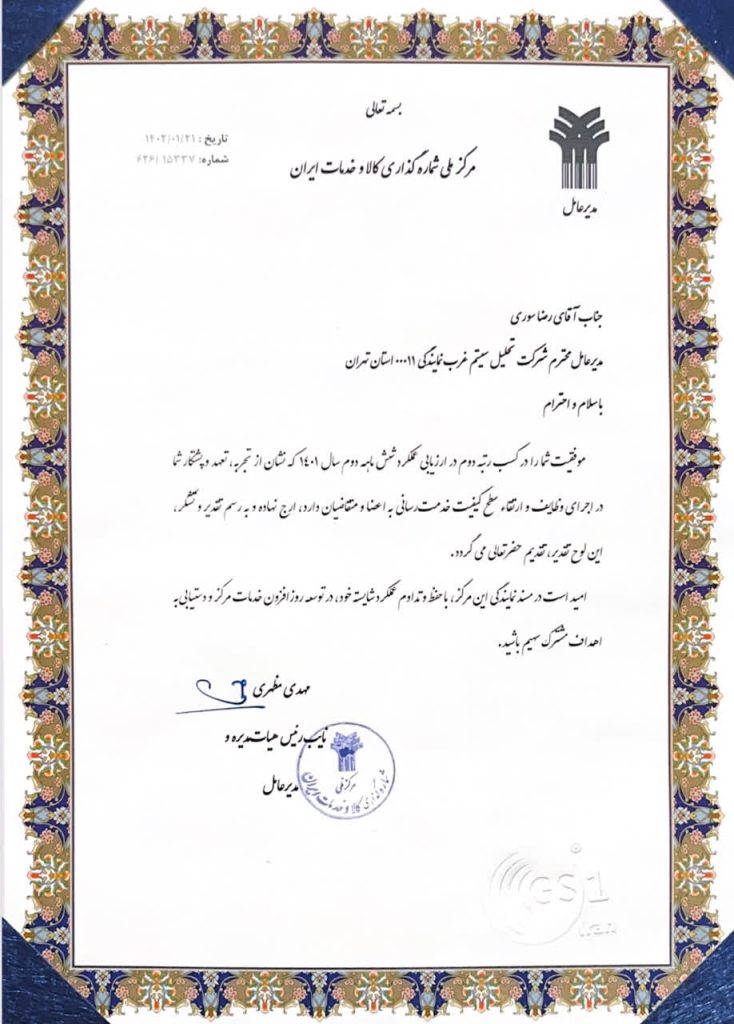 بسمه تعالی
مرکز ملی شماره گذاری کالا و خدمات ایران
تاریخ : ۱۴۰۲/۰۱/۲۱
شماره: ۶۲۶/ ۱۵۳۳۷
مدیرعامل
جناب آقای رضا سوری
مدیرعامل محترم شرکت تحلیل سیستم غرب نمایندگی ۰۰۰۱۱ استان تهران
با سلام و احترام
موفقیت شما را در کسب رتبه دوم در ارزیابی عملکرد شش ماهه دوم سال ۱۴۰۱ که نشان از تجربه، تعهد و پشتکار شما
در اجرای وظایف و ارتقاء سطح کیفیت خدمت‌رسانی به اعضا و متقاضیان دارد، ارج نهاده و به رسم تقدیر و تشکر ،
این لوح تقدیر، تقدیم حضرتعالی می گردد.
امید است در مسند نمایندگی این مرکز، با حفظ و تداوم عملکرد شایسته خود، در توسعه روزافزون خدمات مرکز و دستیابی به
اهداف مشترک سهیم باشید.
مهدی مظهری
نایب رئیس هیات مدیره و
مدیرعامل
مرکز ملی
شماره گذاری کالا و خدمات ایران
GS1
Iran